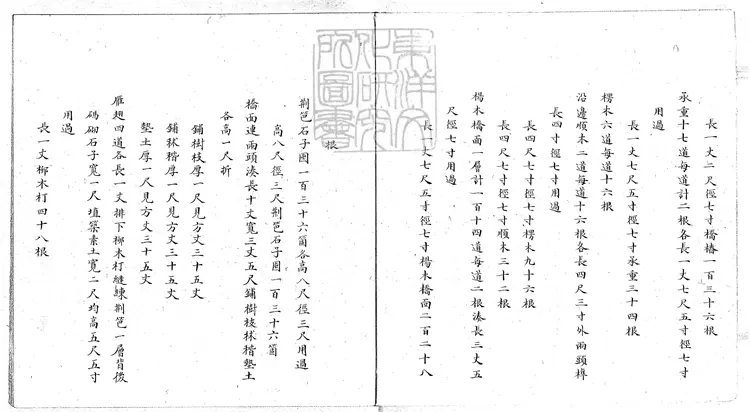 長一丈二尺徑七寸橋樁一百三十六根
承重十七道每道計二根各長一丈七尺五寸徑七寸
用過
長一丈七尺五寸徑七寸承重三十四根
楞木六道每道十六根
沿邊順木二道每道十六根各長四尺三寸外兩頭榫
長四寸徑七寸用過
長四尺七寸徑七寸楞木九十六根
長四尺七寸徑七寸順木三十二根
楊木橋面一層計一百十四道每道二根湊長三丈五
尺徑七寸用過
長一丈七尺五寸徑七寸楊木橋面二百二十八
根
荆笆石子囤一百三十六箇各高八尺徑三尺用過
高八尺徑三尺荆笆石子囤一百三十六箇
橋面連兩頭湊長十丈寬三丈五尺鋪樹枝秫稭墊土
各高一尺折
鋪樹枝厚一尺見方丈三十五丈
鋪秫稭厚一尺見方丈三十五丈
墊土厚一尺見方丈三十五丈
雁翅四道各長一丈排下柳木釘縫練荆笆一層背後
碼砌石子寬一尺填築素土寬二尺均高五尺五寸
用過
長一丈柳木釘四十八根
東洋文化研究所圖書